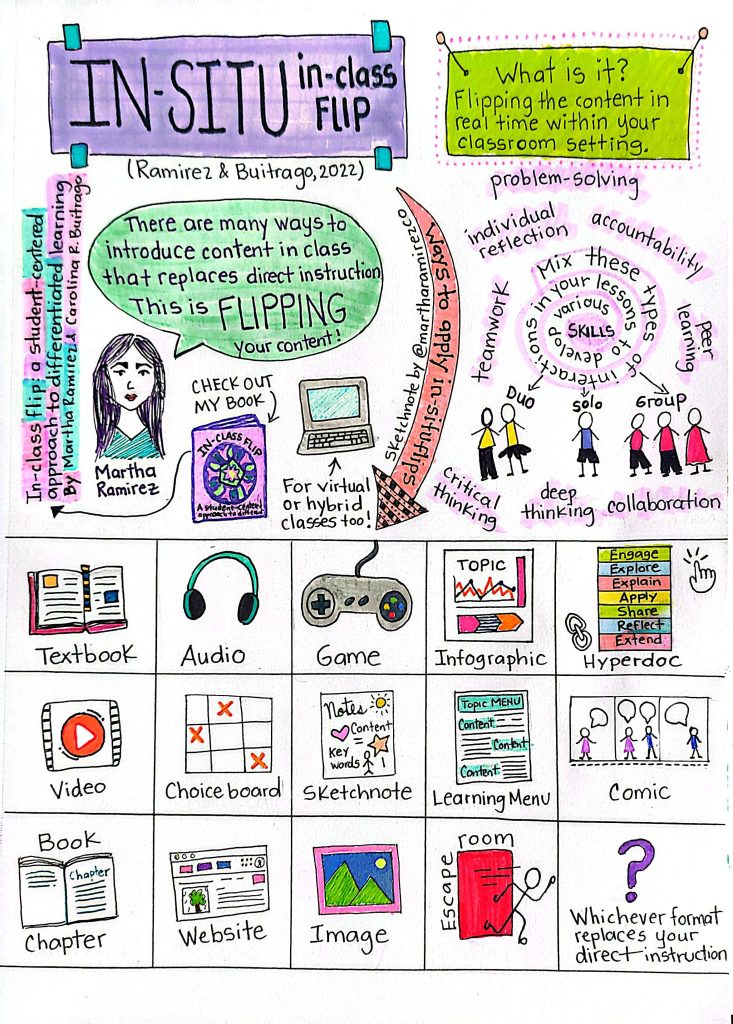 IN-SITU in-class FLIP
(Ramirez & Buitrago, 2022)
What is it?
Flipping the content in
real time within your
classroom setting.
In-class flip: a student-centered
approach to differentiated learning
By Martha Ramirez & Carolina R. Buitrago
There are many ways to
introduce content in class
that replaces direct instruction
This is FLIPPING
your content!
Martha
Ramirez
CHECK OUT
MY BOOK
IN-CLASS FLIP
A student-centered
For virtual
or hybrid
classes too!
Ways to apply in-situ flips
Sketchnote by @martharamirezco
problem-solving
individual
reflection
accountability
teamwork
peer
learning
Mix these types of interactions in your lessons to develop various
SKILLS
Duo
Solo
Group
critical
thinking
deep
thinking
collaboration
Textbook
Audio
Game
TOPIC
Infographic
Engage
Explore
Explain
Apply
Share
Reflect
Extend
Hyperdoc
Video
Choice board
Notes
Content
=
Key
words
Sketchnote
TOPIC MENU
Content
Content
Content
Learning Menu
Comic
Book
Chapter
Chapter
Website
Image
Escape
room
?
Whichever format
replaces your
direct instruction